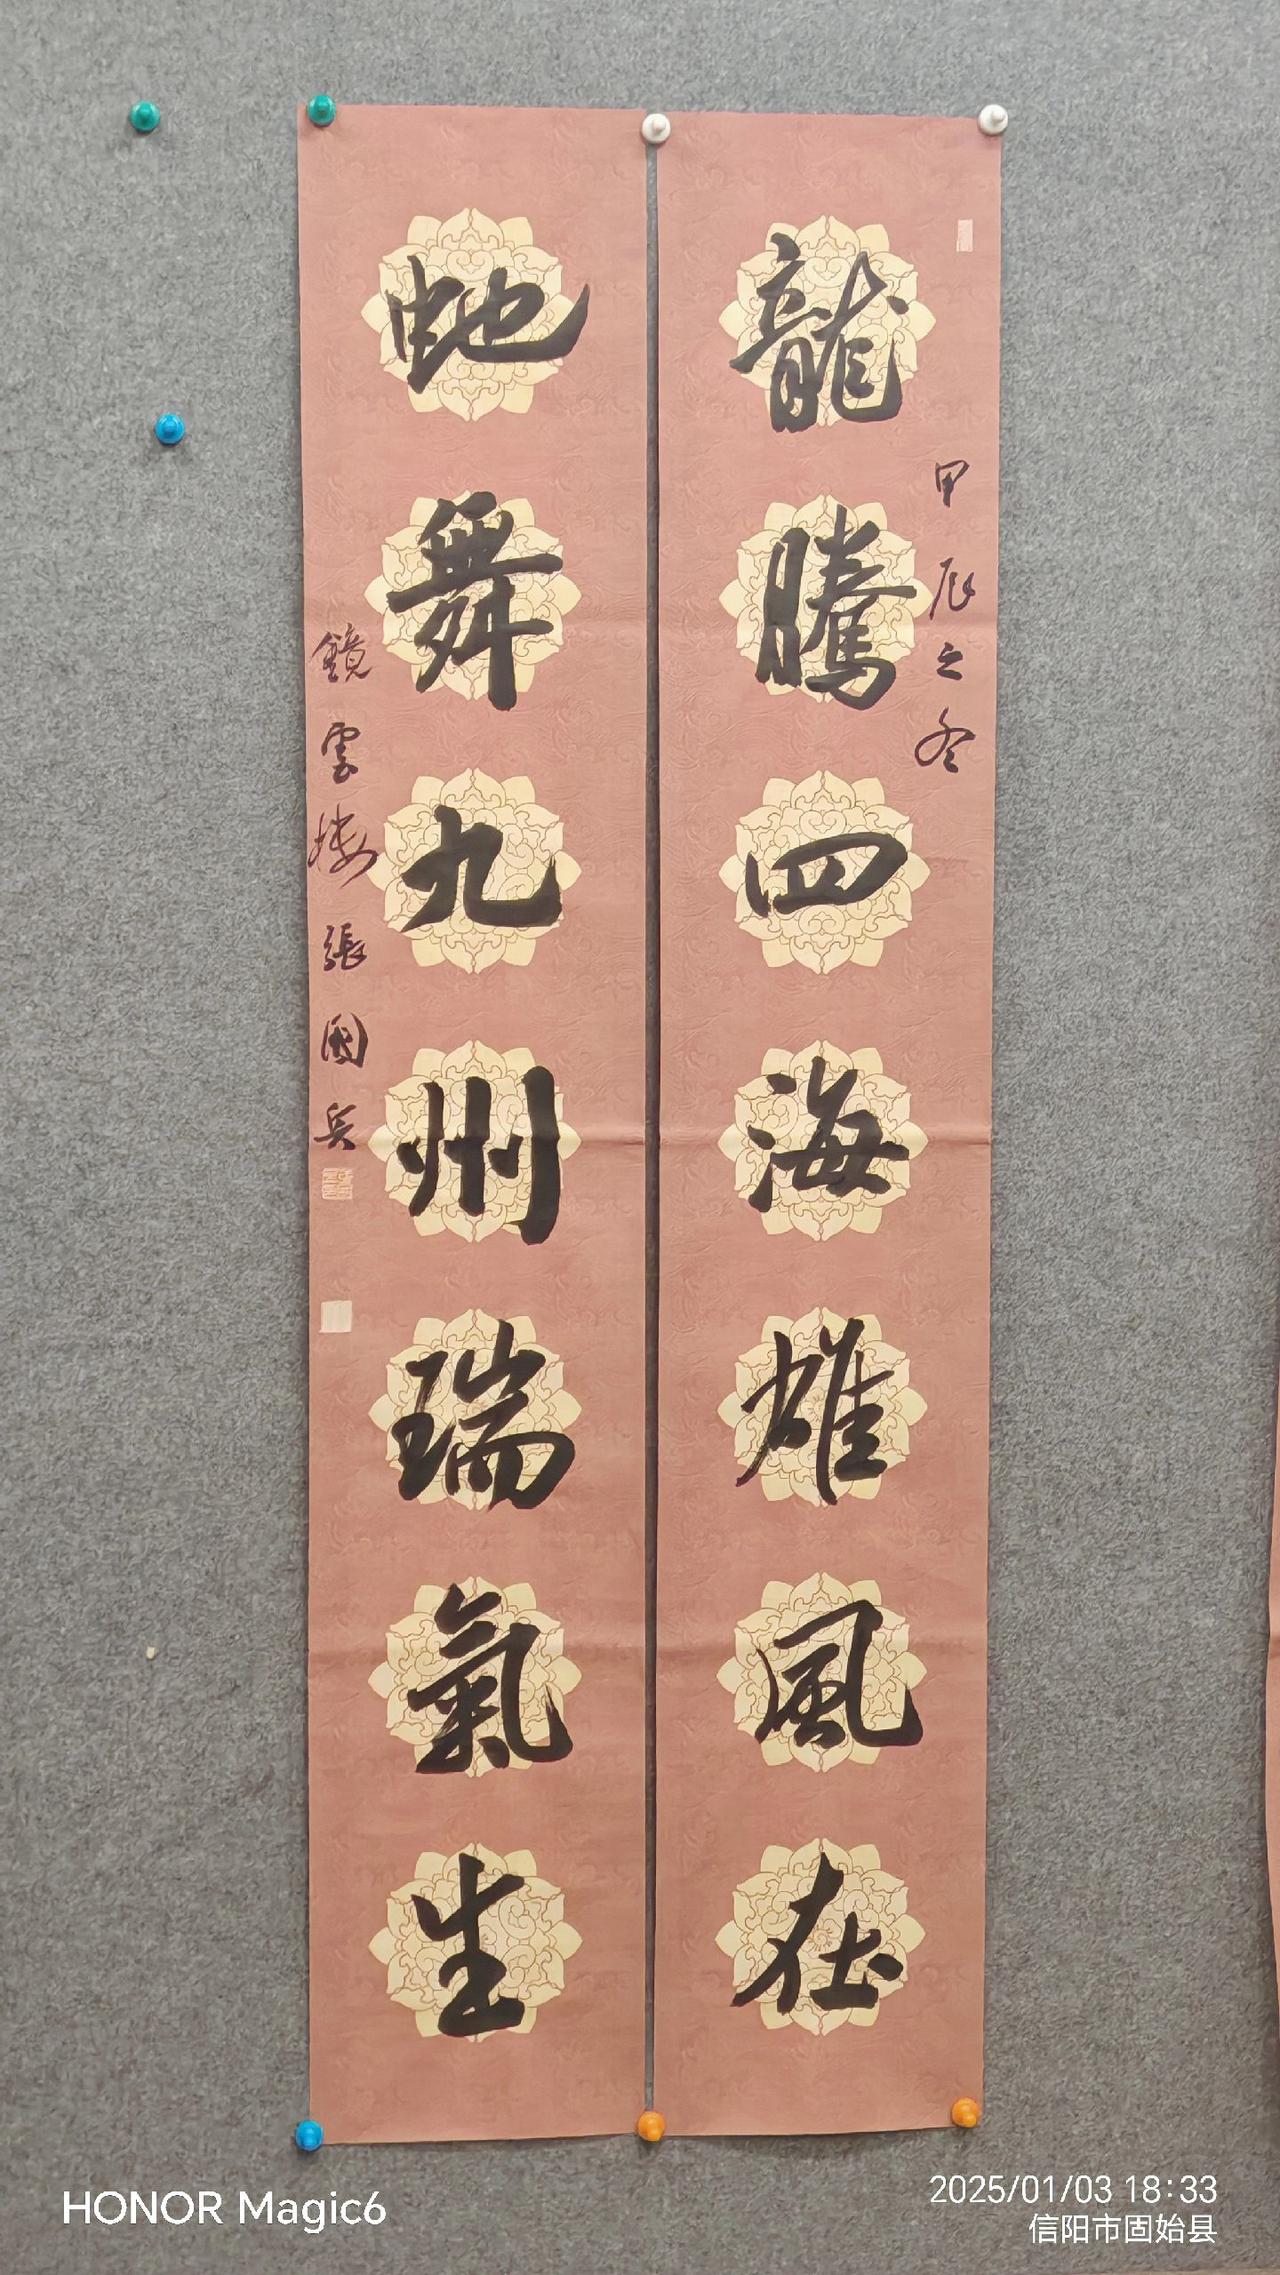 龍騰四海雄風在
甲辰之冬
虵舞九州瑞氣生
鏡雲樓張國兵
HONOR Magic6
2025/01/03 18:33
信阳市固始县